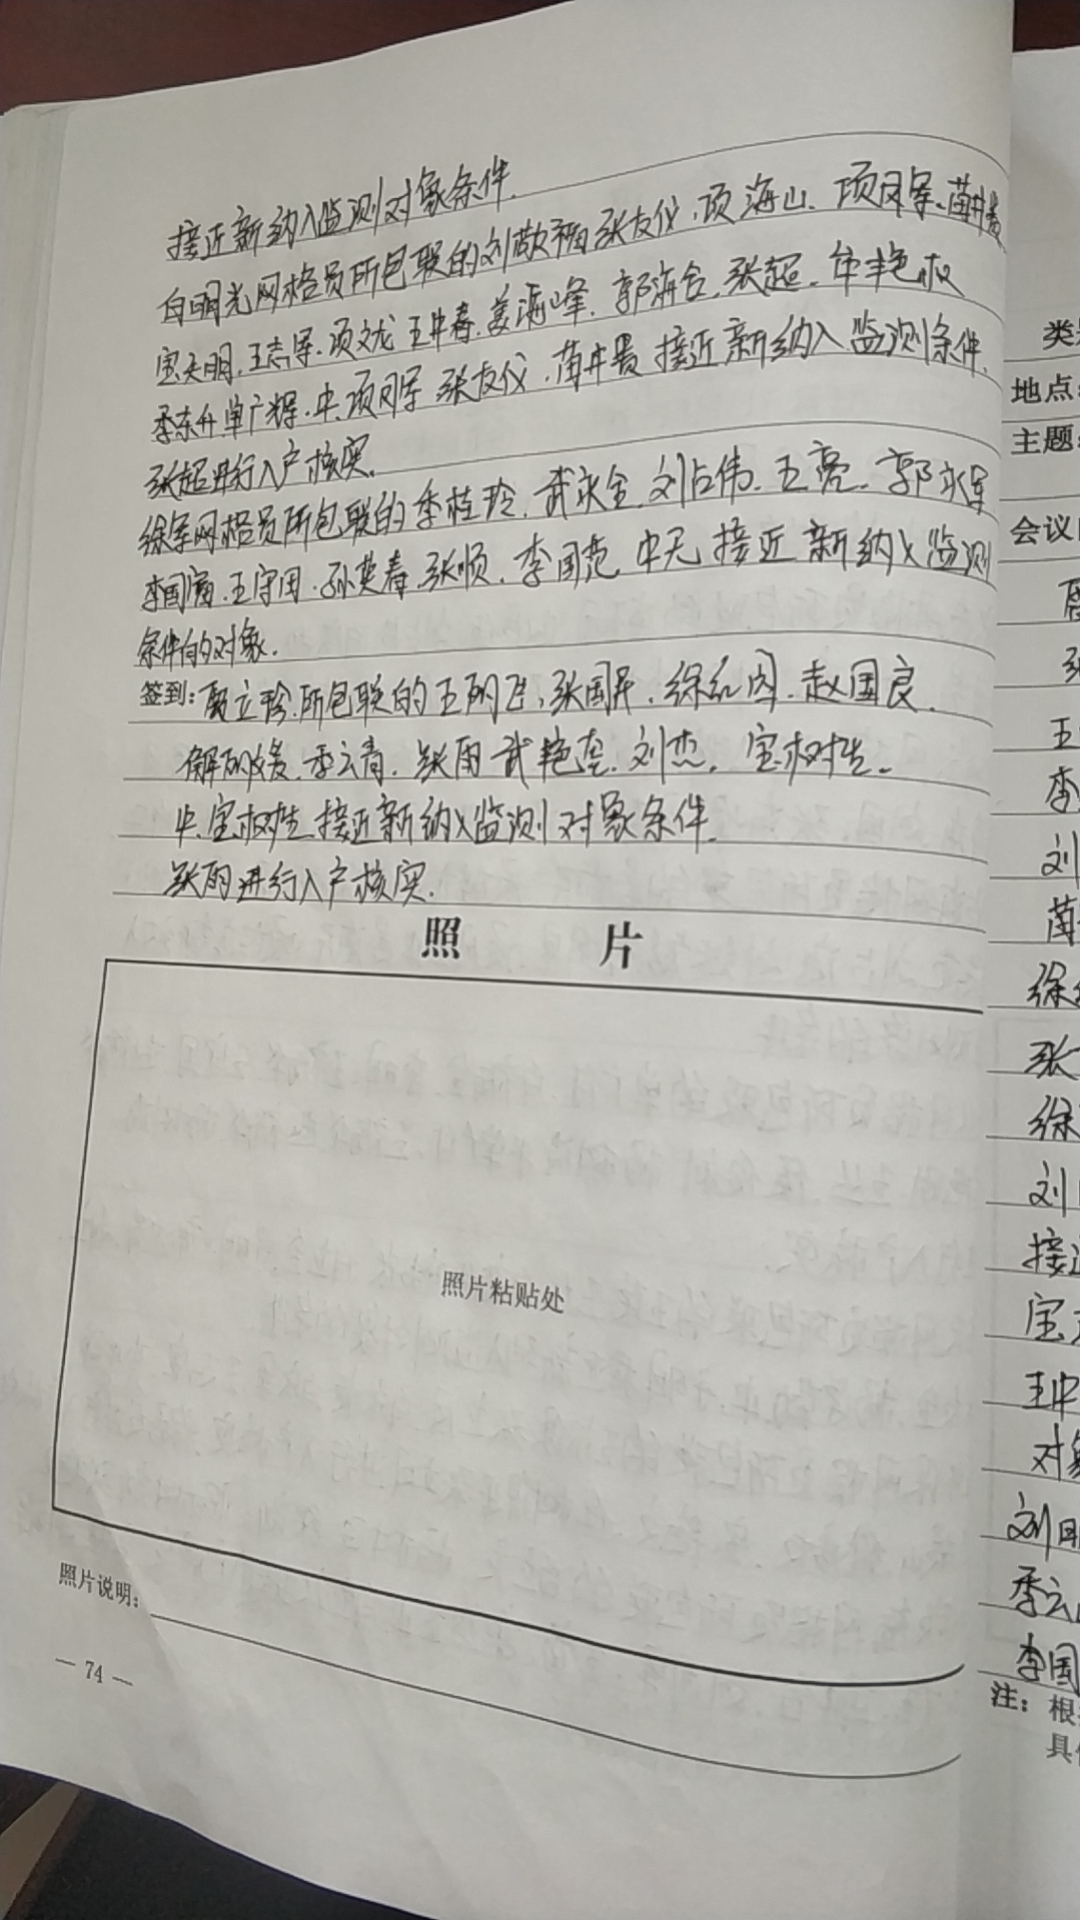 接近新纳入监测对象条件.
白明光网格员所包联的刘敬 张友仪、项海山、项凤军、蔺井贵
宝天明、王志军、项文龙 王井春、姜海峰、郭海合、张超、牟艳权
季东升、单广辉、中、项凤军 张友仪、蔺井贵 接近新纳入监测条件.
张超进行入户核实.
徐军网格员所包联的季桂玲、武永金、刘占伟、王亮、郭永军
李国 王守国、孙英春、张顺、李国范 中无接近新纳入监测
条件的对象.
签到: 立玲、所包联的王 飞、张国 、徐红 、赵国良、
解 、季云青、张雨 武艳 、刘杰、宝树生、
中、宝树生接近新纳入监测对象条件.
张雨进行入户核实.
照 片
照片粘贴处
照片说明:
— 74 —
地点:
主题:
会议
王
李
刘
蔺
徐
张
徐
刘
接
宝
王中
对象
刘
季云
李国
注: 根
具